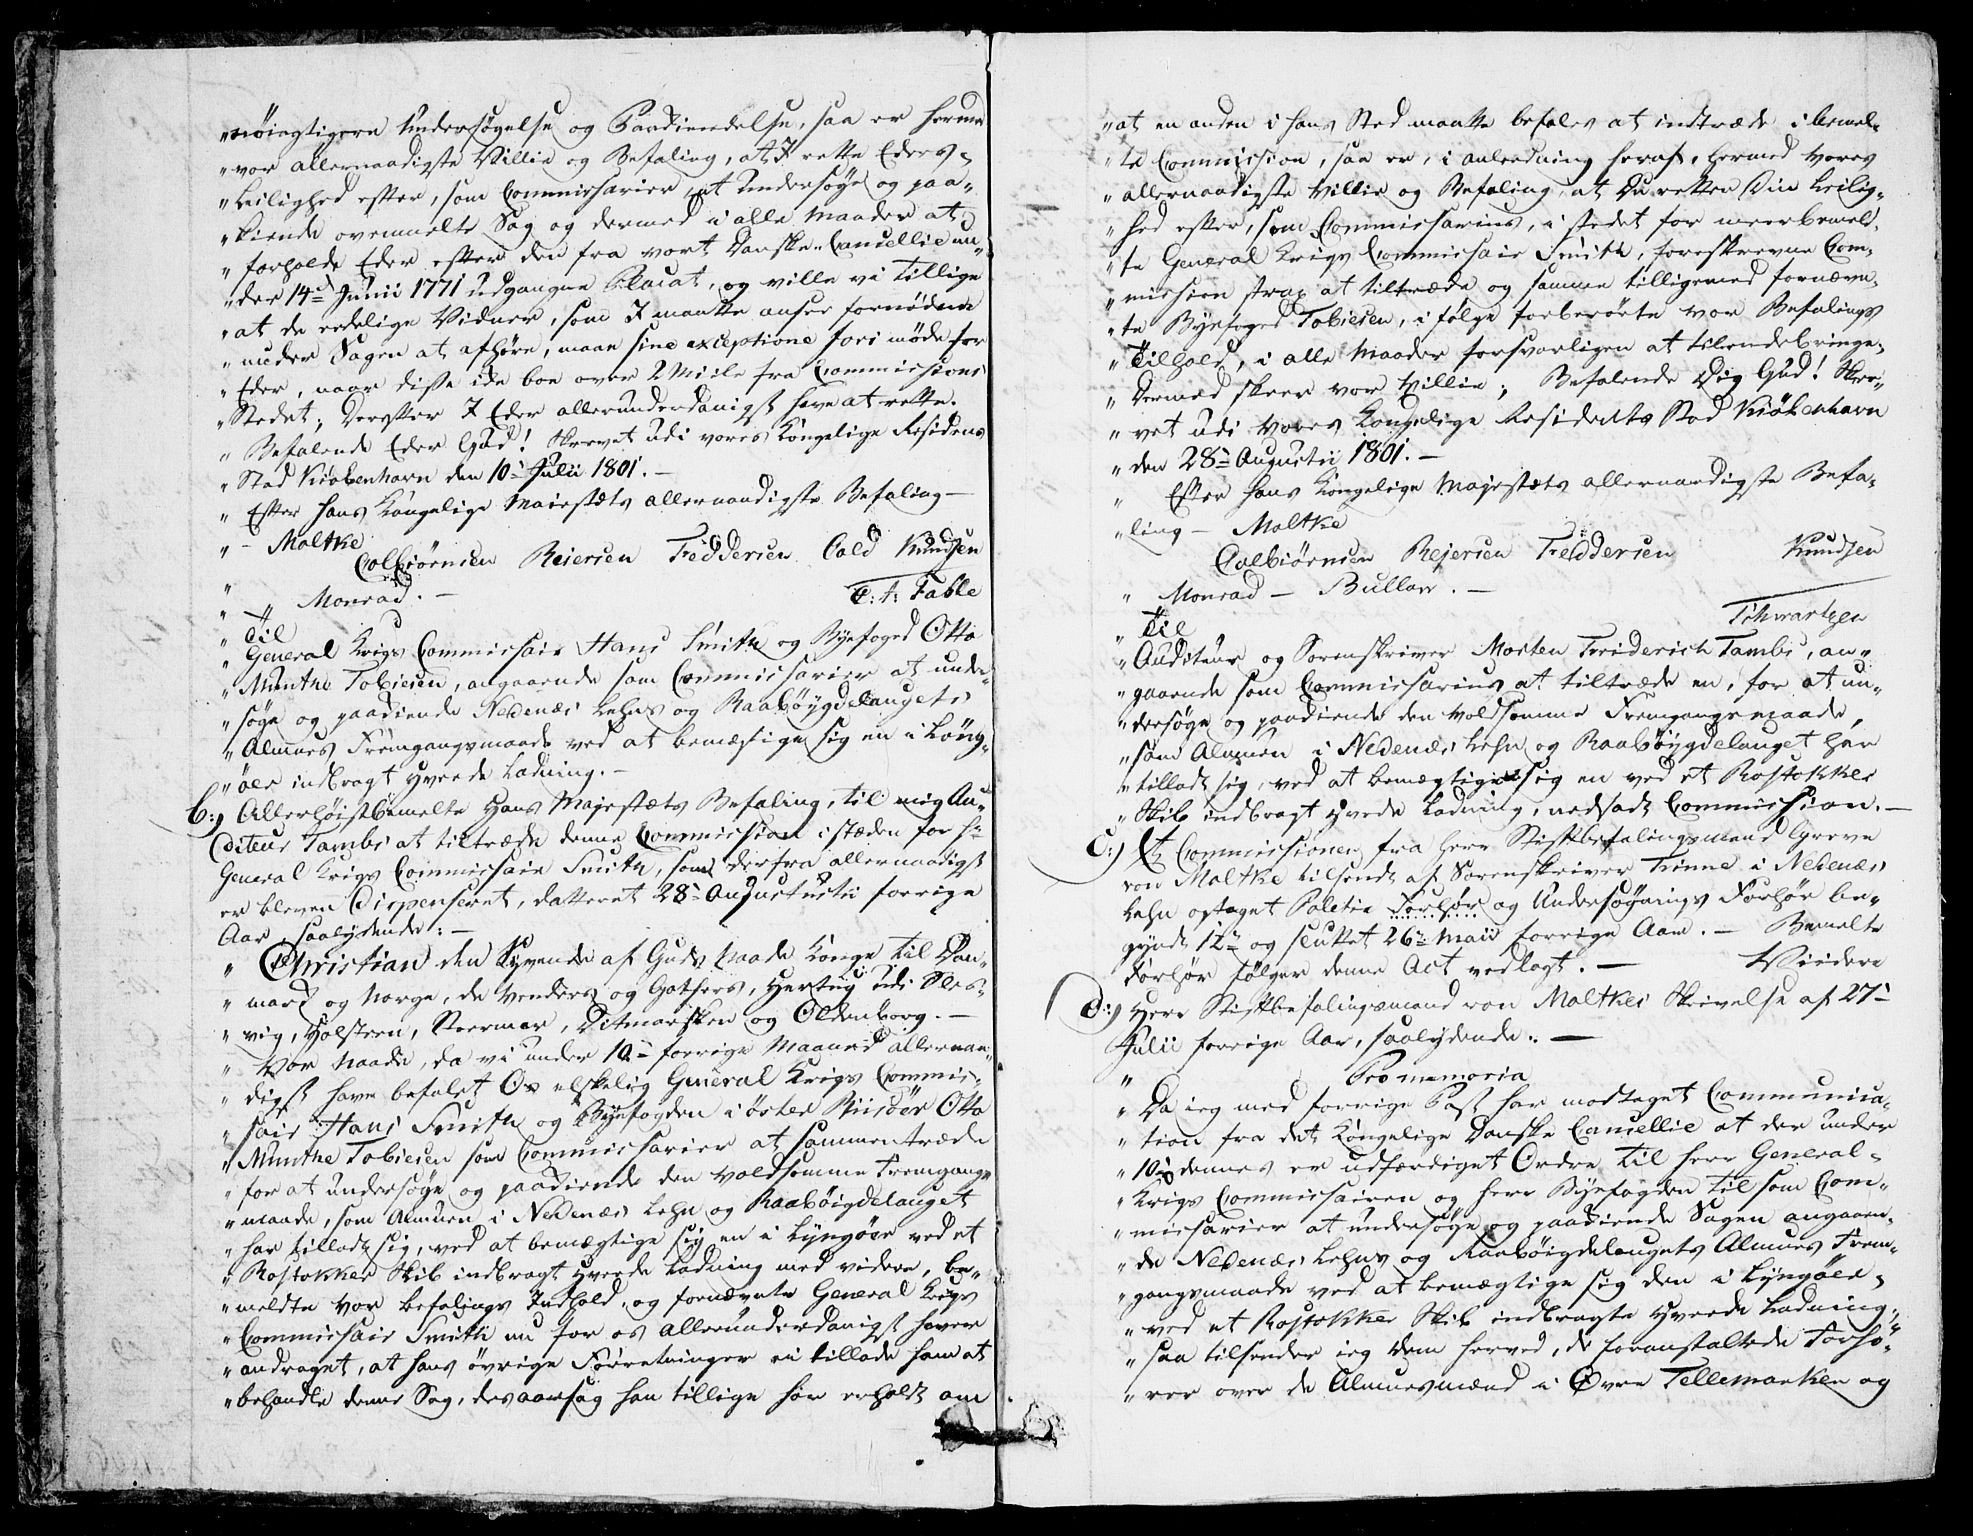 "nöiagtigere Undersøgelse og Paakiendelse, saa er hermed
"vor allernaadigste Villie og Befaling, at I rette Eders
"Leilighed efter, som Commissarier at undersøge og paa-
"kiende ovenmelte Sag og dermed i alle Maader at
"forholde Eder efter den fra vort Danske Cancellie un-
"der 14de Junii 1771 udgangne Placat, og ville vi tillige
"at de eedelige Vidner, som I maatte ansee fornødne
"under Sagen at afhøre, maae sine exceptione fori møde for
"Eder, naar disse ikke boe over 2 Miile fra Commissions
"Stedet; Derefter I Eder allerunderdanigst have at rette.
"Befalende Eder Gud! Skrevet udi vores Kongelige Residens
"Stad Kiøbenhavn den 10de Julii 1801. —
"Efter Hans Kongelige Majestæts allernaadigste Befaling —
" — Moltke
Colbiørnsen Reiersen Feddersen Cold Knudsen
" Monrad. —
Til
"General Krigs Commissair Hans Smith og Byefoged Otto
"Munthe Tobiesen, angaaende som Commissarier at under-
"søge og paakiende Nedenæs Lehns og Raabøygdelaugets
"Almues Fremgangsmaade ved at bemægtige sig en i Lyng-
"öer indbragt Hveede Ladning. —
b:, Allerhøistbemelte Hans Majestæts Befaling, til mig Au-
diteur Tambs at tiltræde denne Commission i stæden for Hr
General Krigs Commissair Smith, som derfra allernaadigst
er bleven dispenseret, datteret 28de Augustii forrige
Aar, saalydende: —
" Christian den Syvende af Guds Naade Konge til Dan-
"mark og Norge, de Venders og Gothers, Hertug udi Sles-
"vig, Holsteen, Stormar, Ditmarsken og Oldenborg. —
"Vor Naade, da vi under 10de forrige Maaned allernaa-
"digst have befalet Os elskelig General Krigs Commis-
"sair Hans Smith og Byefogden i Öster Riisöer Otto
"Munthe Tobiesen som Commissarier at sammentræde
"for at undersøge og paakiende den voldsomme Fremgangs
"maade, som Almuen i Nedenæs Lehn og Raabøigdelauget
"har tilladt sig, ved at bemægtige sig en i Lyngöer ved et
"Rostokker Skib indbragt Hveede Ladning med videre, be-
"meldte vor Befalings Indhold, og fornævnte General Krigs
"Commissair Smith nu for os allerunderdanigst haver
"andraget, at hans övrige Forretninger ei tillade ham at
"behandle denne Sag, desaarsag han tillige har erholdt om
"at en anden i hans Sted maatte befales at indtræde i bemel-
"te Commission, saa er, i anledning heraf, hermed vores
"allernaadigste Villie og Befaling, at Du retter Din Leilig-
"hed efter, som Commissarius, i stedet for meerbemeld-
"te General Krigs Commissair Smith, foreskrevne Com-
"mission strax at tiltræde og samme tilligemed fornævn-
"te Byefoged Tobiesen, i følge forberörte vor Befalings
"Tilhold, i alle Maader forsvarligen at tilendebringe.
"Dermed skeer vor Villie; Befalende Dig Gud! Skre-
"vet udi vores Kongelige Residents Stad Kiøbenhavn
"den 28de Augustii 1801. —
" Efter Hans Kongelige Majestæts allernaadigste Befa-
"ling — Moltke
Colbiörnsen Rejersen Feddersen Knudsen
" Monrad — Bullow. —
"Til Schwartzen
"Auditeur og Sorenskriver Morten Friderich Tambs, an-
"gaaende som Commissarius at tiltræde en, for at un-
"dersøge og paakiende den voldsomme Fremgangsmaade,
"som Almuen i Nedenæs Lehn og Raabøygdelauget har
"tilladt sig, ved at bemægtige sig en ved et Rostokker
"Skib indbragt Hvede Ladning, nedsadt Commission. —
C:, Et Commissionen fra Herr Stiftbefalingsmand Greve
von Moltke tilsendt af Sorenskriver Finne i Nedenæs
Lehn optaget Politie Forhör og Undersøgnings Forhör be-
gyndt 12te og sluttet 26de Maii forrige Aar. — Bemelte
Forhör følger denne Act vedlagt. — Viidere
d:, Herr Stiftbefalingsmand von Moltkes Skrivelse af 27de
Julii forrige Aar, saalydende. —
" Promemoria
"Da ieg med forrige Post har modtaget Communica-
"tion fra det Kongelige Danske Cancellie at der under
"10de dennes er udfærdiget Ordre til Herr General-
"Krigs Commissairen og Herr Byefogden til som Com-
"missarier at undersøge og paakiende Sagen angaaen-
"de Nedenæs Lehns og Raabøigdelaugets Almues Frem-
"gangsmaade ved at bemægtige sig den i Lyngöer,
"ved et Rostokker Skib indbragte Hveede Ladning;
"saa tilsender ieg Dem herved, de foranstaltede Forhö-
"rer over de Almuesmænd i Øvre Tellemarken og